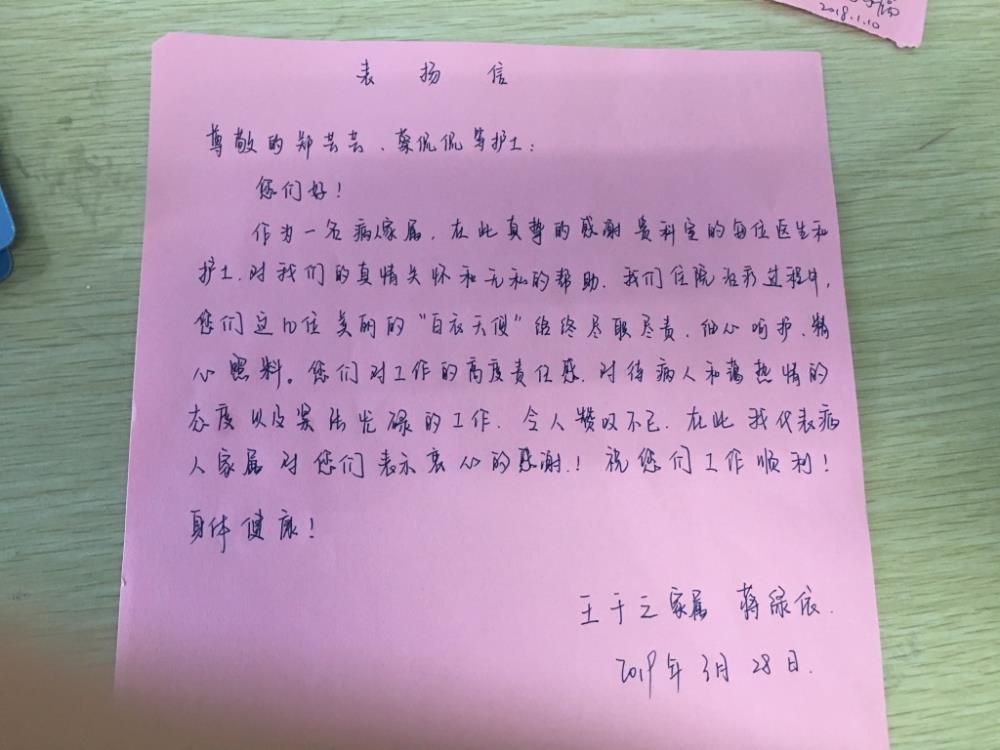 2018.1.10
表扬信
尊敬的郑芸芸、蔡侃侃等护士：
您们好！
作为一名病人家属，在此真挚的感谢贵科室的每位医生和
护士，对我们的真情关怀和无私的帮助，我们住院治疗过程中，
您们这位美丽的“白衣天使”始终尽职尽责，细心呵护、精
心照料。您们对工作的高度责任感，对待病人和蔼热情的
态度以及紧张忙碌的工作，令人赞叹不已，在此我代表病
人家属对您们表示衷心的感谢！祝您们工作顺利！
身体健康！
王于立家属 蒋绿依
2019年3月28日.